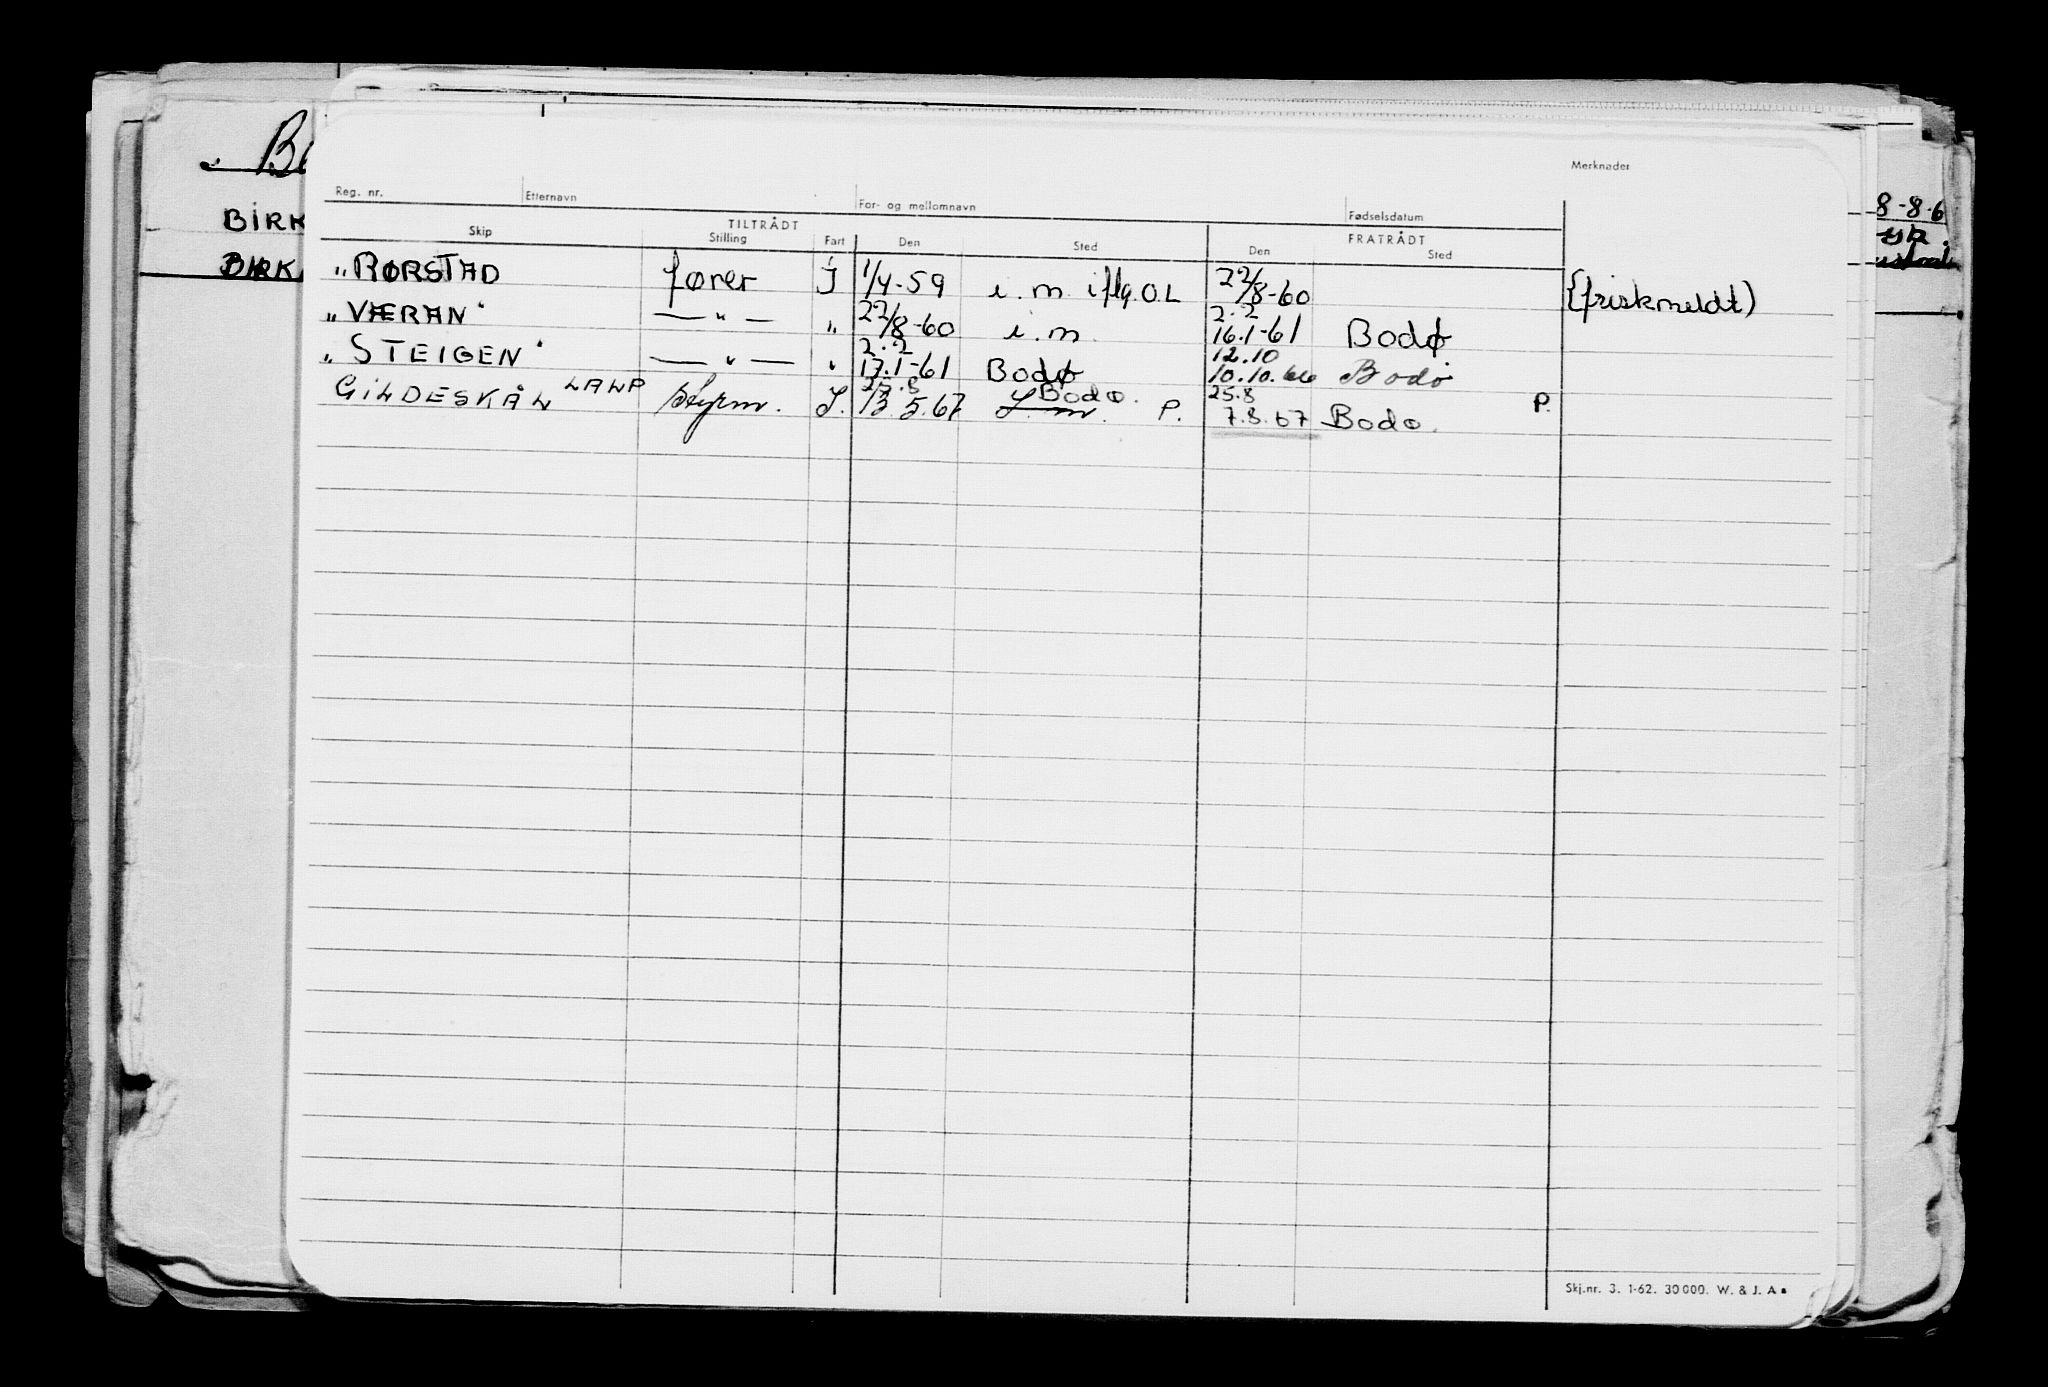 Merknader
Reg. nr. Etternavn For- og mellomnavn Fødselsdatum
TILTRÅDT FRATRÅDT
Skip Stilling Fart Den Sted Den Sted
„RØRSTAD fører I 1/4-59 i.m. iflg. O.L 22/8-60 (friskmeldt)
„VÆRAN" —"— " 22/8-60 i.m. 2.2 16.1-61 Bodø
„STEIGEN" —"— " 2.2 17.1-61 Bodø 12.10 10.10.66 Bodø
GILDESKÅL LALP styrm. I. 13.5.67 I.m. Bodø. P. 25.8 7.8.67 Bodø. P.
Skj.nr. 3. 1-62. 30 000. W. & J. A
BIRK
BIRK
8-8-6